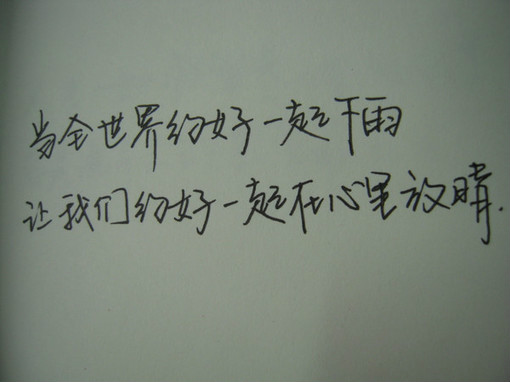 当全世界约好一起下雨
让我们约好一起在心里放晴.